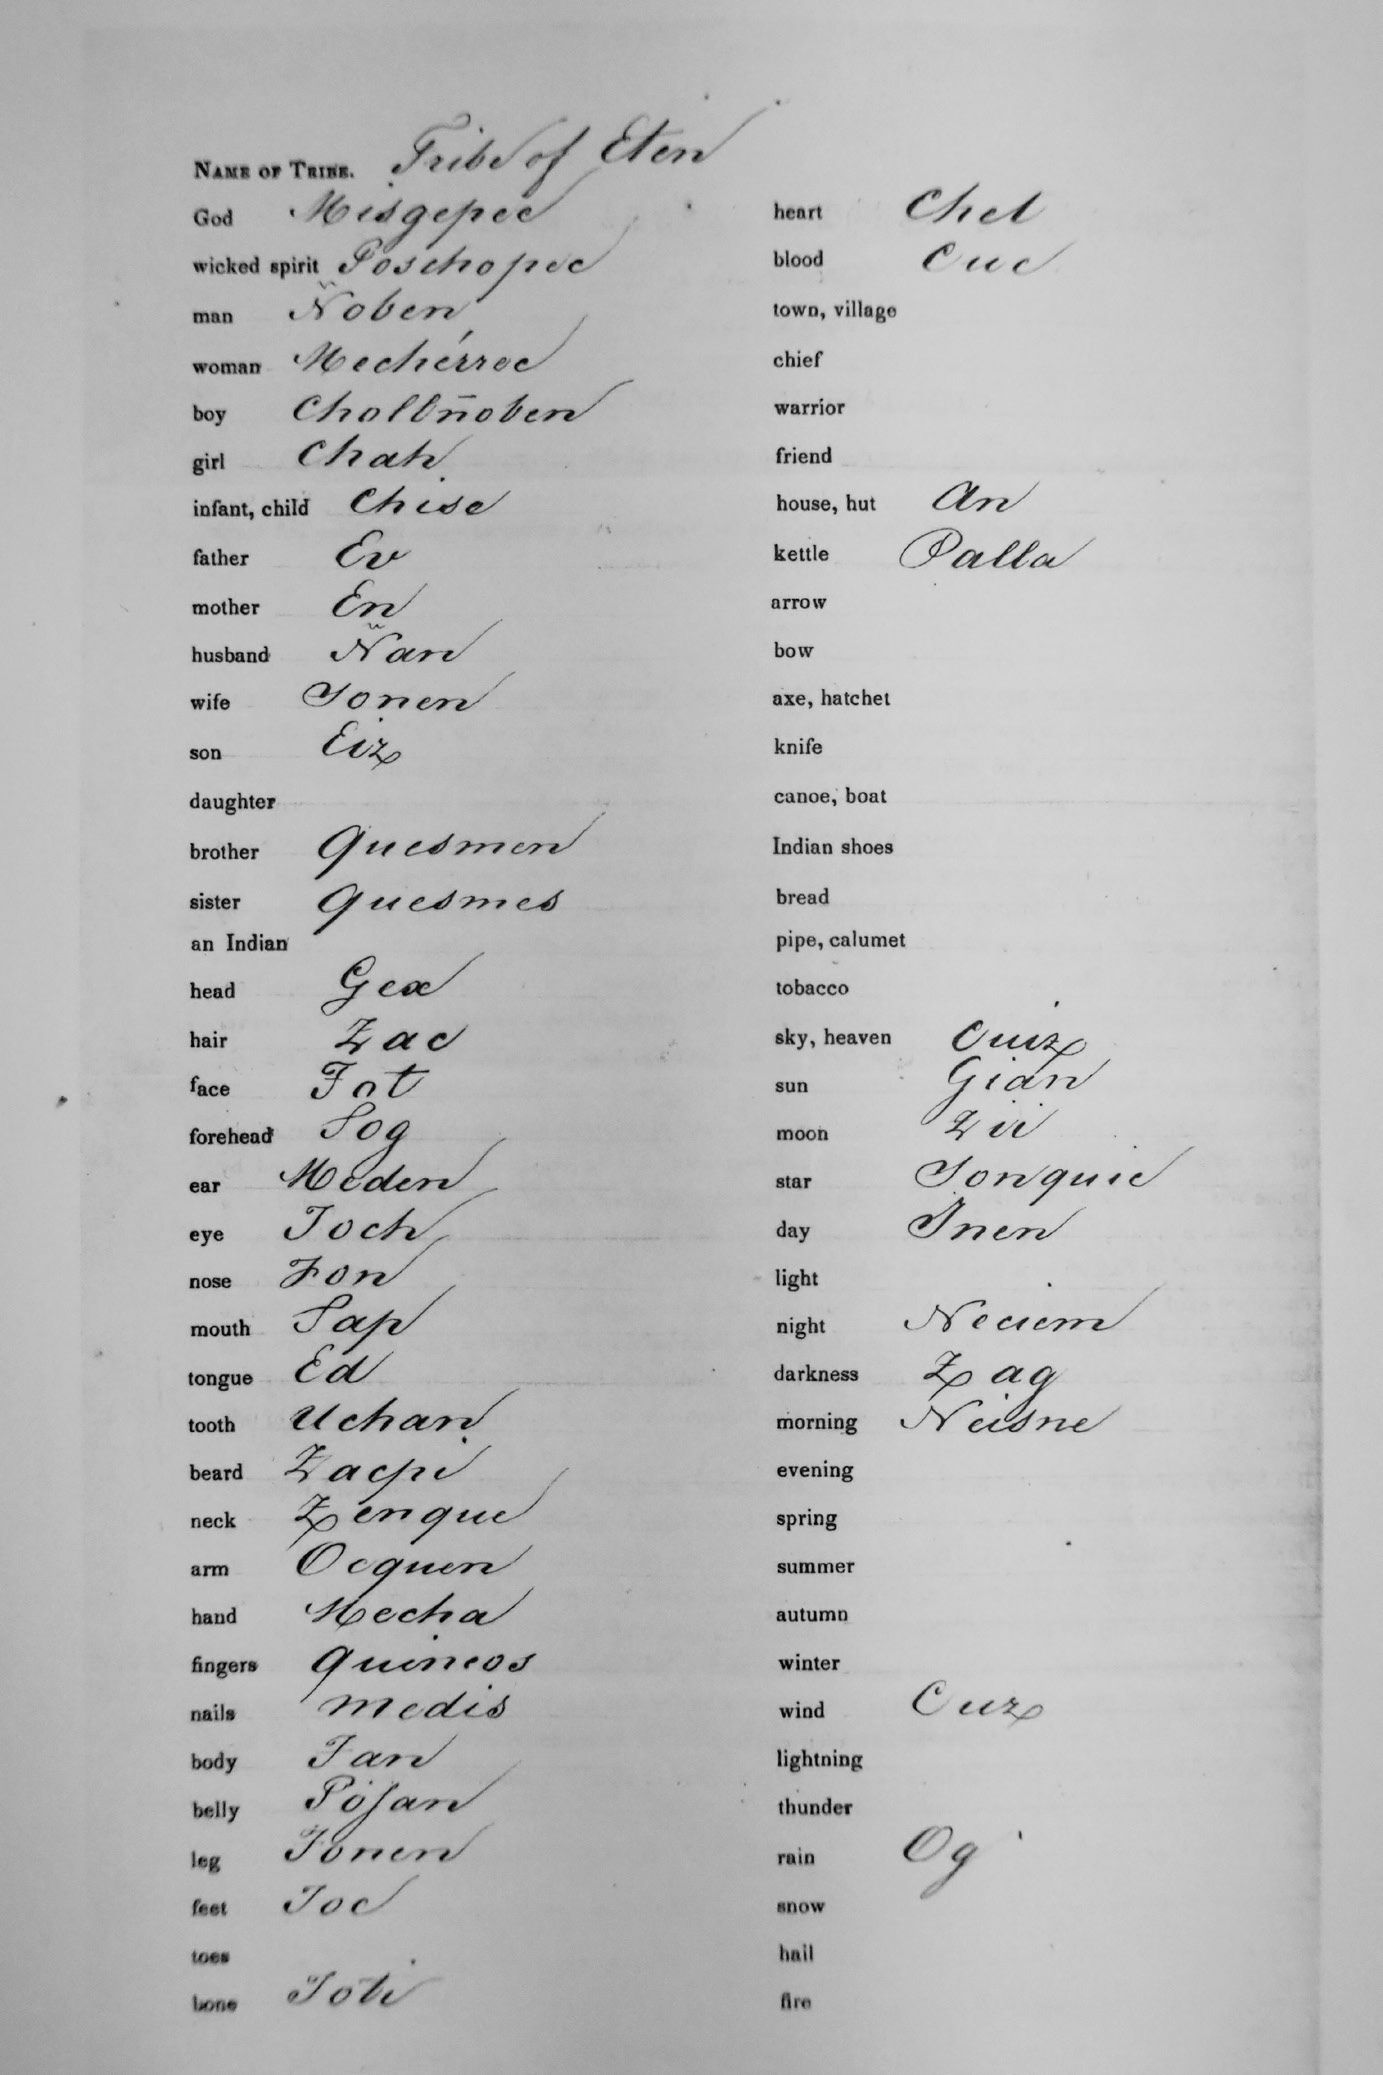 NAME OF TRIBE. Tribe of Eten
God Misgepec
wicked spirit Poschopec
man Ñoben
woman Mechérroc
boy Cholbñoben
girl Chah
infant, child Chise
father Ev
mother En
husband Ñan
wife Sonen
son Eiz
daughter
brother Quesmen
sister Quesmes
an Indian
head Gea
hair Zac
face Fot
forehead Sog
ear Meden
eye Joch
nose Fon
mouth Sap
tongue Ed
tooth Uchan
beard Zacpi
neck Zenque
arm Ocquen
hand Mecha
fingers Quineos
nails medis
body
belly Pójan
leg Tonen
feet Joc
toes
bone Joti
heart Chet
blood Cuc
town, village
chief
warrior
friend
house, hut An
kettle Palla
arrow
bow
axe, hatchet
knife
canoe, boat
Indian shoes
bread
pipe, calumet
tobacco
sky, heaven Cuiz
sun Gian
moon Zii
star Sonquic
day Inen
light
night Neciem
darkness Zag
morning Neisne
evening
spring
summer
autumn
winter
wind Cuz
lightning
thunder
rain Og
snow
hail
fire